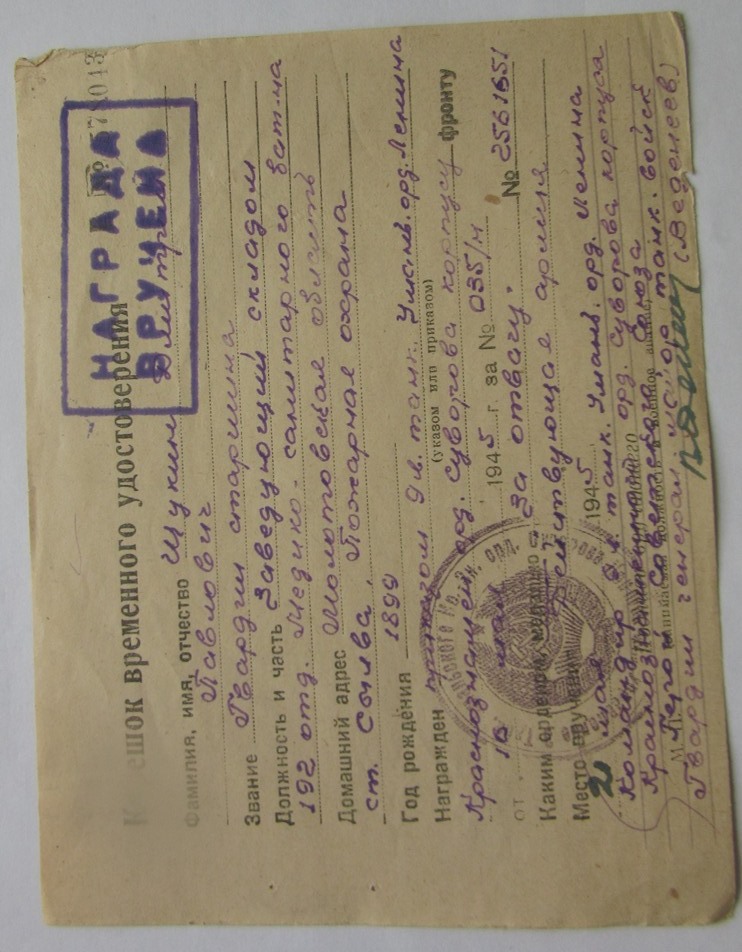 № 578013
К ешок временного удостоверения
НАГРАДА
ВРУЧЕНА
Фамилия, имя, отчество Щукин Дмитрий
Павлович
Звание Гвардии старшина
Должность и часть Заведующий складом
192 отд. Медико-санитарного бат-на
Домашний адрес Молотовская область
ст. Сылва, Пожарная охрана
Год рождения 1899
Награжден приказом 9 гв. танк. Уманьс. орд. Ленина
(указом или приказом)
Краснознаменн. орд. Суворова корпусу фронту
от 16 мая 1945 г. за № 035/н
Каким орденом, медалью "За отвагу" № 2561651
Место вручения Действующая армия
21 мая 1945
Командир 9 гв. танк. Уманьс. орд. Ленина
Краснознаменный орд. Суворова корпуса
Герой Советского Союза
М. П.
Гвардии генерал-майор танк. войск
(Веденеев)